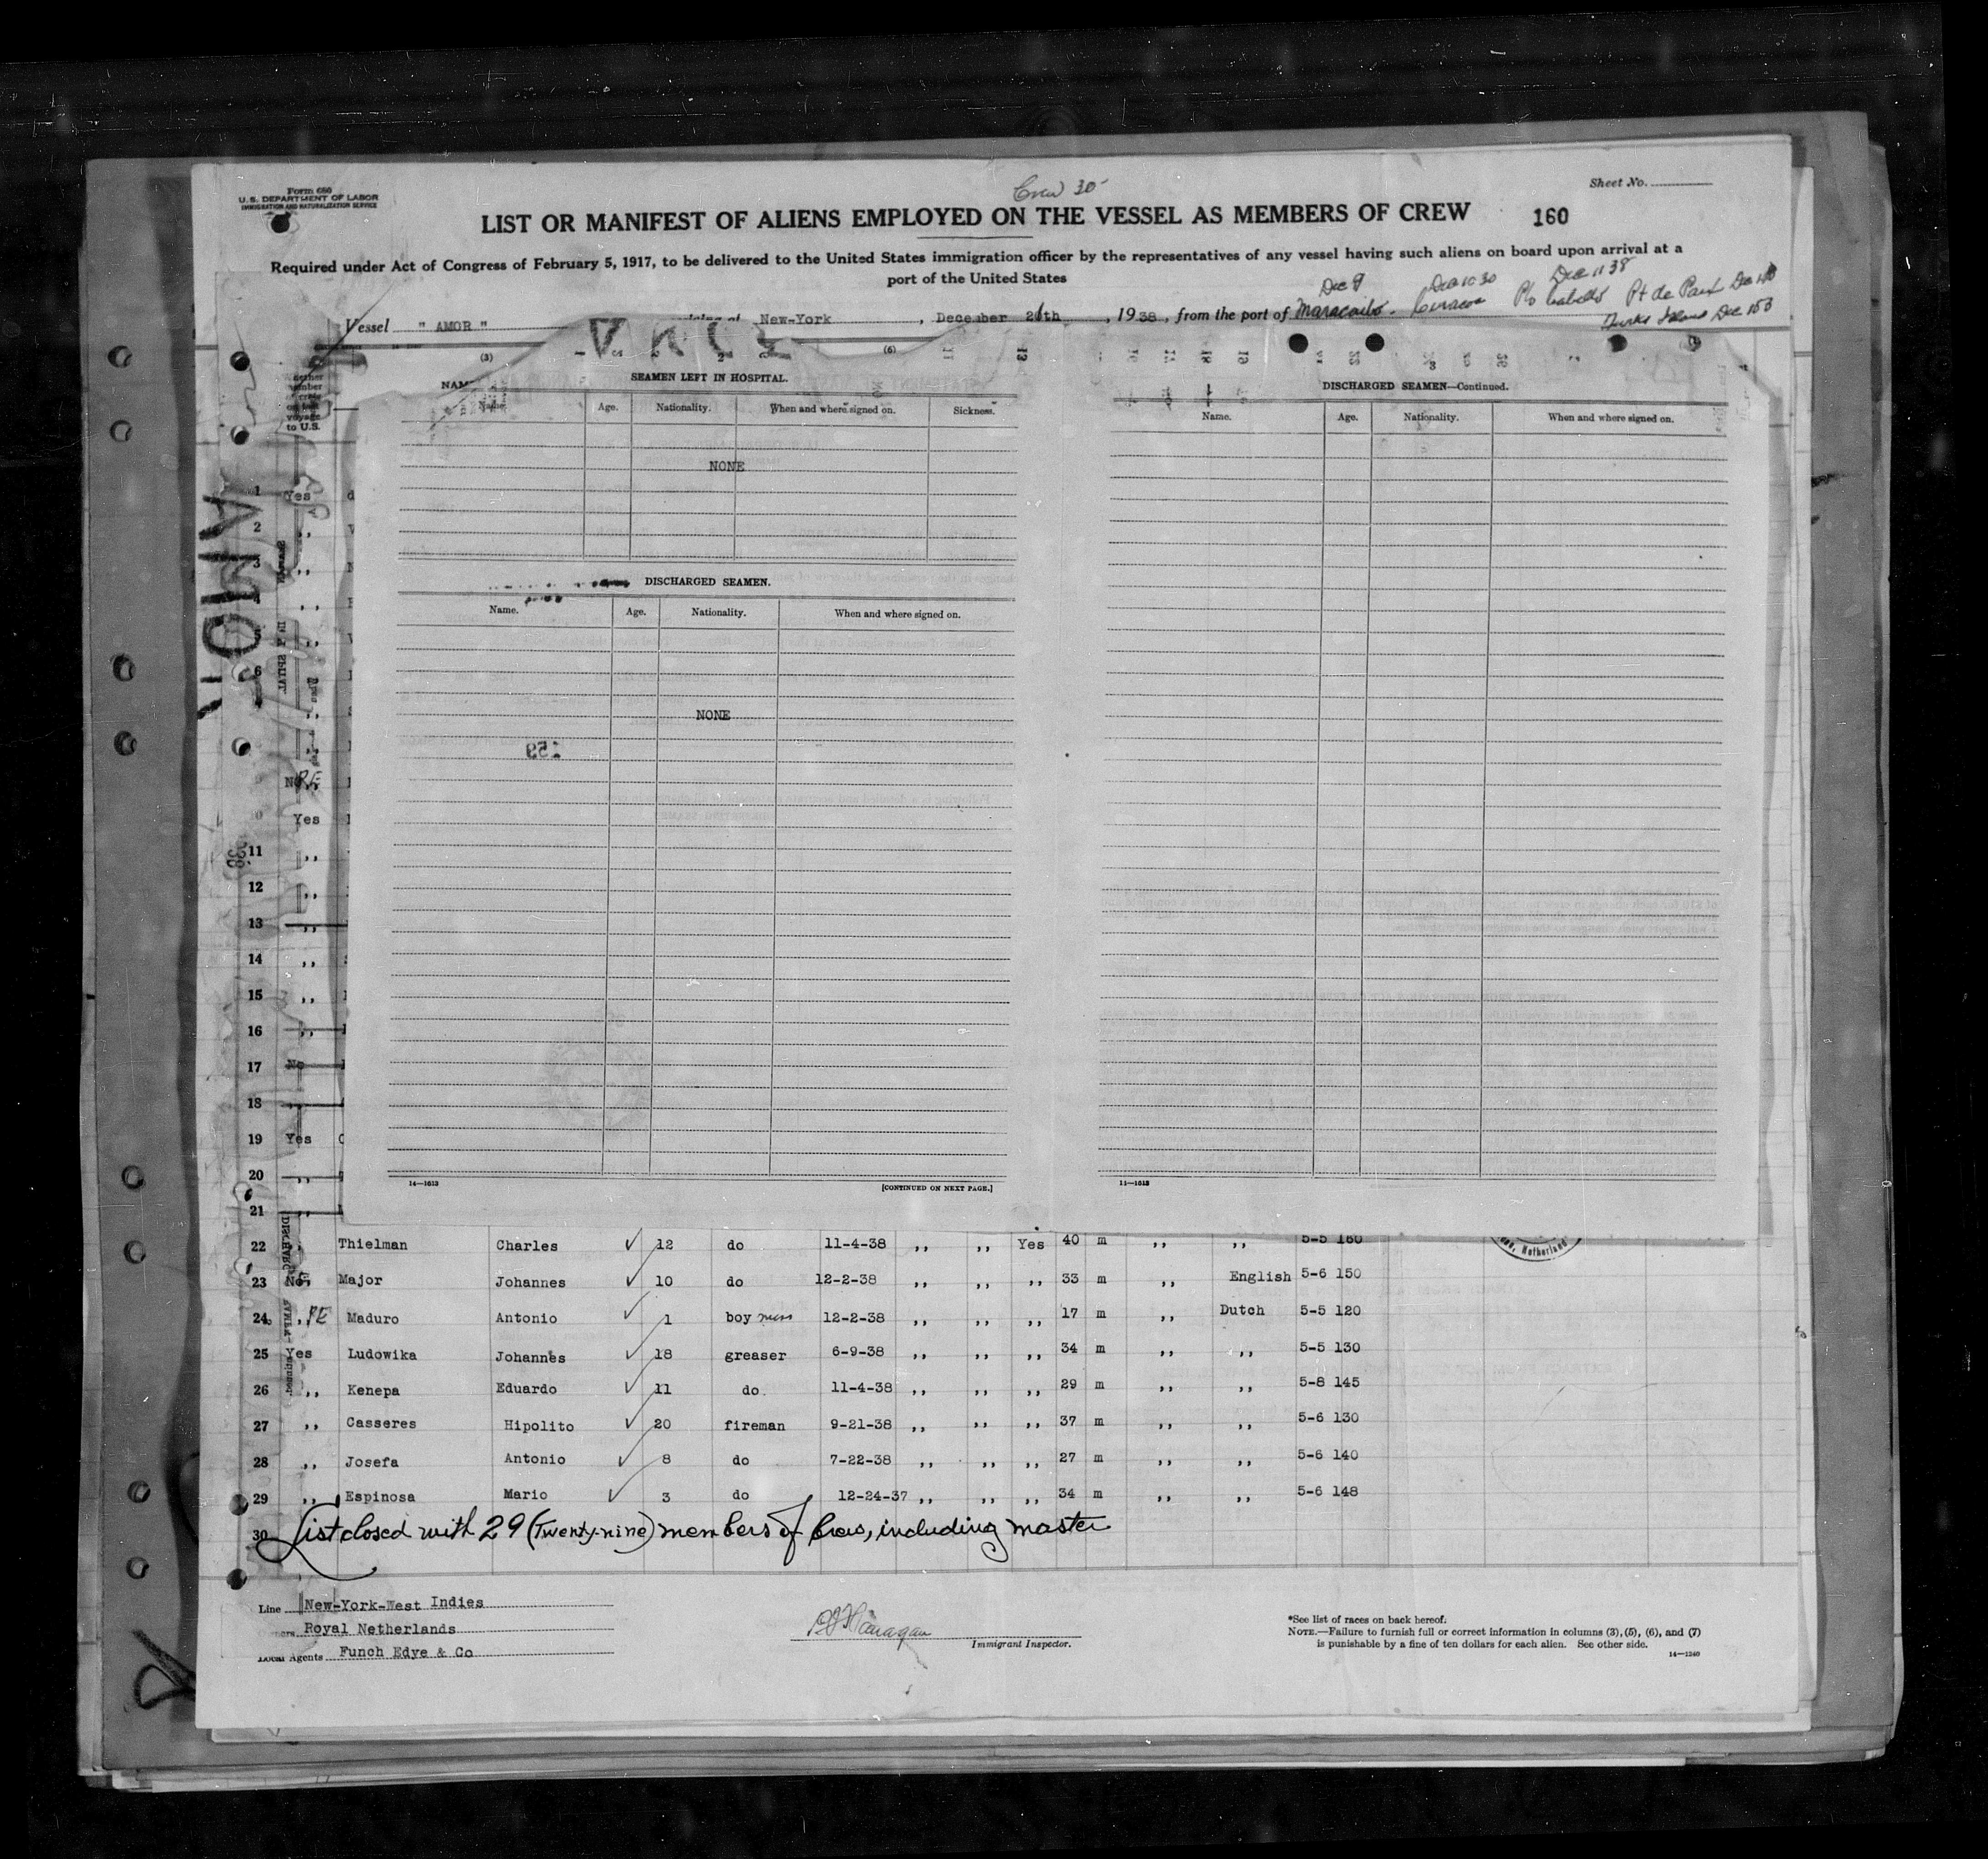 Form 680
U. S. DEPARTMENT OF LABOR
IMMIGRATION AND NATURALIZATION SERVICE
Crew 30
Sheet No.
LIST OR MANIFEST OF ALIENS EMPLOYED ON THE VESSEL AS MEMBERS OF CREW
160
Required under Act of Congress of February 5, 1917, to be delivered to the United States immigration officer by the representatives of any vessel having such aliens on board upon arrival at a
port of the United States
Dec 9
Vessel " AMOR " New-York , December 20th , 1938 , from the port of Maracaibo. Curacoa Pt de Paix
Turks Island Dec
(3) (6)
SEAMEN LEFT IN HOSPITAL.
Name. Age. Nationality. When and where signed on. Sickness.
NONE
DISCHARGED SEAMEN.
Name. Age. Nationality. When and where signed on.
NONE
159
14—1613
[CONTINUED ON NEXT PAGE.]
DISCHARGED SEAMEN—Continued.
Name. Age. Nationality. When and where signed on.
14—1613
AMOR
voyage
to U.S.
1 Yes
2 ,,
3 ,,
4 ,,
5 ,,
6
No RE
Yes
11 ,,
12 ,,
13 ,,
14 ,,
15 ,,
16 ,,
17 No
18 ,,
19 Yes
20 ,,
21 ,,
22 ,, Thielman Charles 12 do 11-4-38 ,, ,, Yes 40 m ,, ,, 5-5 160
23 No Major Johannes 10 do 12-2-38 ,, ,, ,, 33 m ,, English 5-6 150
24 ,, RE Maduro Antonio 1 boy mess 12-2-38 ,, ,, ,, 17 m ,, Dutch 5-5 120
25 Yes Ludowika Johannes 18 greaser 6-9-38 ,, ,, ,, 34 m ,, ,, 5-5 130
26 ,, Kenepa Eduardo 11 do. 11-4-38 ,, ,, ,, 29 m ,, ,, 5-8 145
27 ,, Casseres Hipolito 20 fireman 9-21-38 ,, ,, ,, 37 m ,, ,, 5-6 130
28 ,, Josefa Antonio 8 do 7-22-38 ,, ,, ,, 27 m ,, ,, 5-6 140
29 ,, Espinosa Mario 3 do 12-24-37 ,, ,, ,, 34 m ,, ,, 5-6 148
30 List closed with 29 (Twenty-nine) members of Crew, including master
Line New-York-West Indies
Royal Netherlands
Local Agents Funch Edye & Co
Immigrant Inspector.
*See list of races on back hereof.
NOTE.—Failure to furnish full or correct information in columns (3), (5), (6), and (7)
is punishable by a fine of ten dollars for each alien. See other side.
14—1240